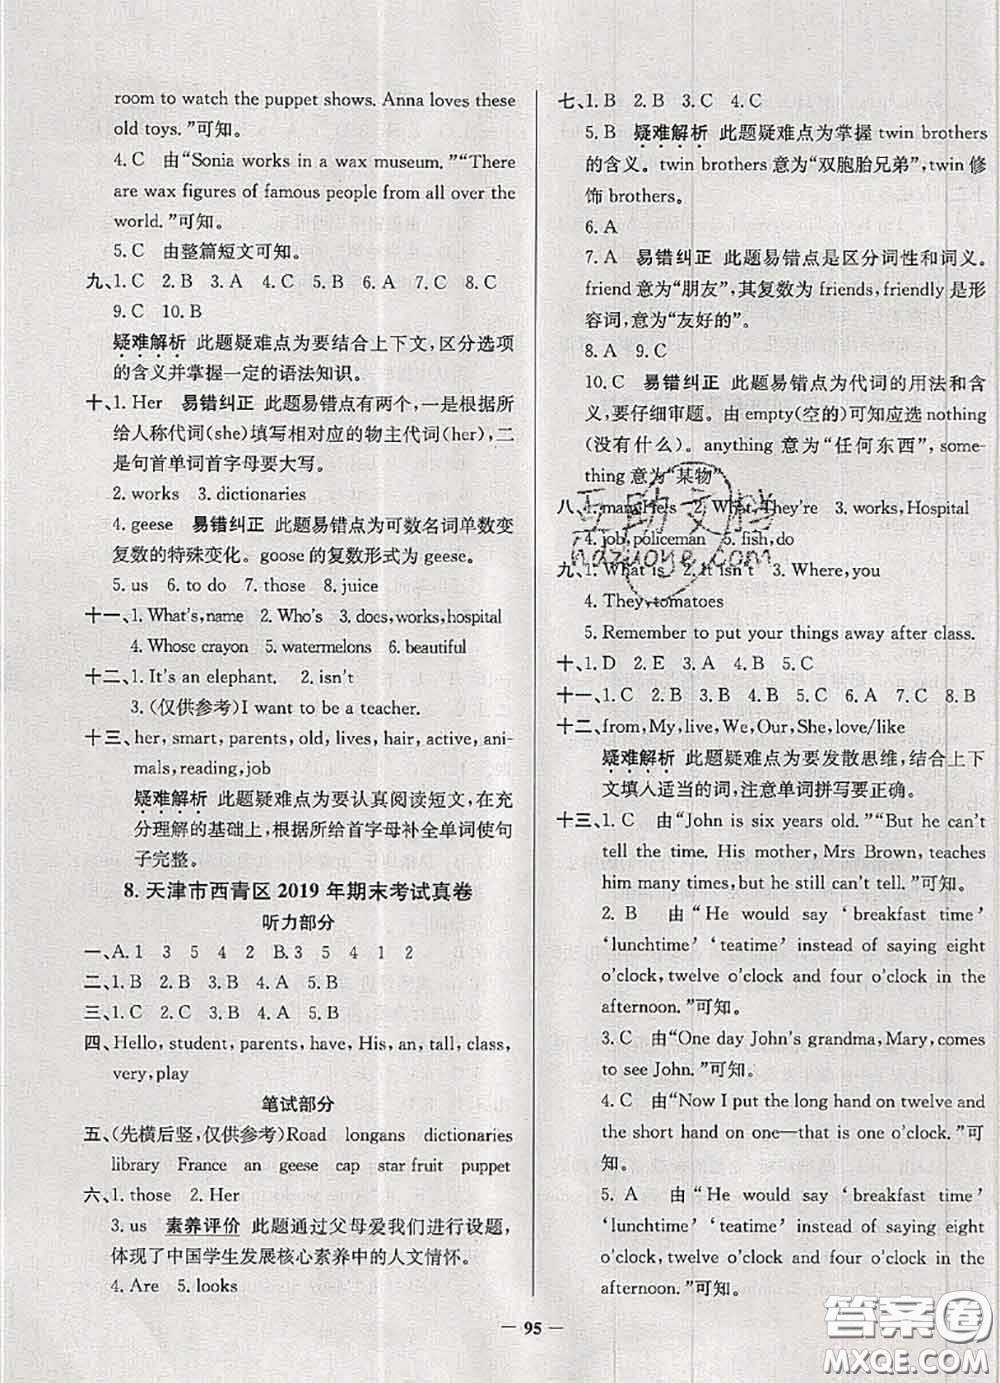 room to watch the puppet shows. Anna loves these
old toys.”可知。
4. C 由“Sonia works in a wax museum.”“There
are wax figures of famous people from all over the
world.”可知。
5. C 由整篇短文可知。
九、1. C 2. B 3. A 4. C 5. B 6. A 7. C 8. C
9. C 10. B
疑难解析 此题疑难点为要结合上下文，区分选项
的含义并掌握一定的语法知识。
十、1. Her 易错纠正 此题易错点有两个，一是根据所
给人称代词(she)填写相对应的物主代词(her)，二
是句首单词首字母要大写。
2. works 3. dictionaries
4. geese 易错纠正 此题易错点为可数名词单数变
复数的特殊变化。goose的复数形式为geese。
5. us 6. to do 7. those 8. juice
十一、1. What's, name 2. Who's 3. does, works, hospital
4. Whose crayon 5. watermelons 6. beautiful
十二、1. It's an elephant. 2. isn't
3. (仅供参考)I want to be a teacher.
十三、her, smart, parents, old, lives, hair, active, ani-
mals, reading, job
疑难解析 此题疑难点为要认真阅读短文，在充
分理解的基础上，根据所给首字母补全单词使句
子完整。
8. 天津市西青区 2019 年期末考试真卷
听力部分
一、A. 1 3 5 4 2 B. 3 5 4 1 2
二、1. B 2. B 3. B 4. A 5. B
三、1. C 2. C 3. B 4. A 5. B
四、Hello, student, parents, have, His, an, tall, class,
very, play
笔试部分
五、(先横后竖，仅供参考)Road longans dictionaries
library France an geese cap star fruit puppet
六、1. those 2. Her
3. us 素养评价 此题通过父母爱我们进行设题，
体现了中国学生发展核心素养中的人文情怀。
4. Are 5. looks
七、1. B 2. B 3. C 4. C
5. B 疑难解析 此题疑难点为掌握 twin brothers
的含义。twin brothers意为“双胞胎兄弟”，twin修
饰brothers。
6. A
7. A 易错纠正 此题易错点是区分词性和词义。
friend意为“朋友”，其复数为friends，friendly是形
容词，意为“友好的”。
8. A 9. C
10. C 易错纠正 此题易错点为代词的用法和含
义，要仔细审题。由empty(空的)可知应选nothing
(没有什么)。anything意为“任何东西”，some-
thing意为“某物”
八、1. man, He's 2. What, They're 3. works, Hospital
4. job, policeman 5. fish, do
九、1. What is 2. It isn't 3. Where, you
4. They, tomatoes
5. Remember to put your things away after class.
十、1. D 2. E 3. A 4. B 5. C
十一、1. C 2. B 3. B 4. C 5. A 6. A 7. C 8. B
十二、from, My, live, We, Our, She, love/like
疑难解析 此题疑难点为要发散思维，结合上下
文填入适当的词，注意单词拼写要正确。
十三、1. C 由“John is six years old.”“But he can't
tell the time. His mother, Mrs Brown, teaches
him many times, but he still can't tell.”可知。
2. B 由“He would say ‘breakfast time’
‘lunchtime’ ‘teatime’ instead of saying eight
o'clock, twelve o'clock and four o'clock in the
afternoon.”可知。
3. C 由“One day John's grandma, Mary, comes
to see John.”可知。
4. C 由“Now I put the long hand on twelve and
the short hand on one—that is one o'clock.”可
知。
5. A 由“He would say ‘breakfast time’
‘lunchtime’ ‘teatime’ instead of saying eight
o'clock, twelve o'clock and four o'clock in the
afternoon.”可知。
— 95 —
互助文档
hdzuoye.com
答案圈
MXQE.COM